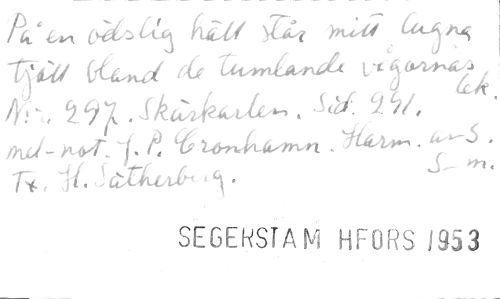 På en ödslig häll står mitt lugna
tjäll bland de tumlande vågornas
lek.
N:r. 297. Skärkarlen. Sid. 291.
mel-not. J. P. Cronhamn. Harm. av S.
S-m.
Tx. H. Sätherberg.
SEGERSTAM HFORS 1953